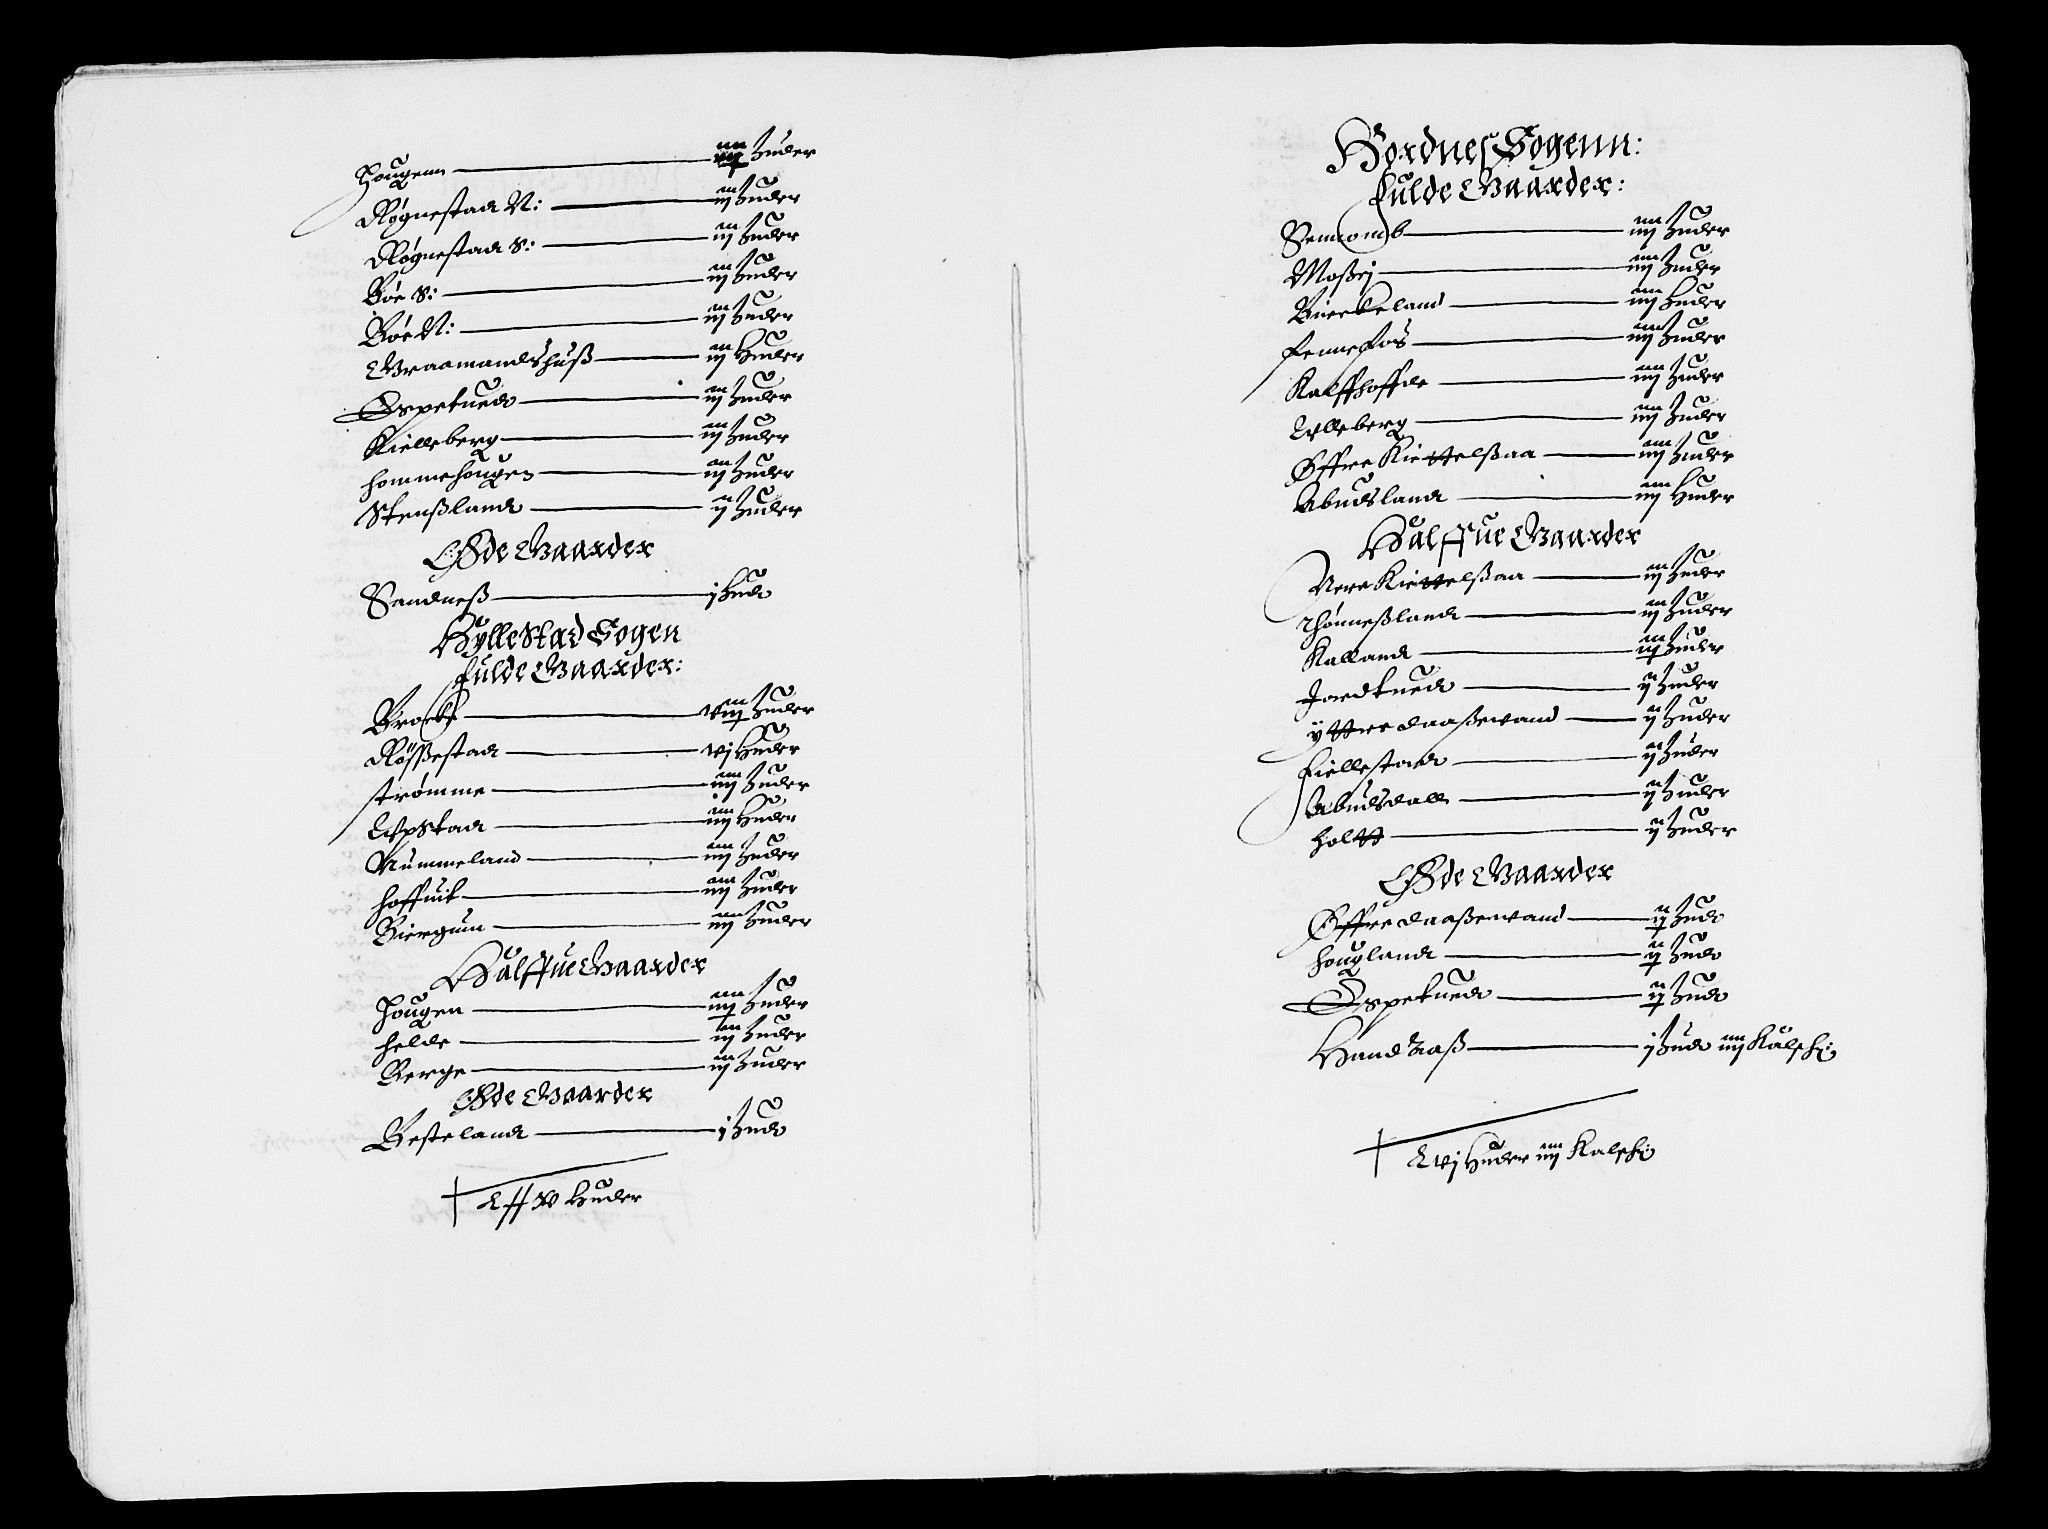 Hougenn — iiij Huder
Røgnestad N: — iij Huder
Røgnestad S: — iij Huder
Bøe S: — iij Huder
Bøe N: — iij Huder
Graamandshuß — iij Huder
Espetued — iij Huder
Kielleberg — iij Huder
Hommehougen — iij Huder
Stenßland — ij Huder
Øde Gaarder
Sandneß — j Hud
Hyllestad Sogen
Fulde Gaarder:
Brocke — viij Huder
Røßestad — vj Huder
Strømme — iiij Huder
Opstad — iiij Huder
Nummeland — iiij Huder
Hoffuit — iiij Huder
Biergum — iiij Huder
Halffue Gaarder
Hougen — iiij Huder
Helde — iij Huder
Berge — iij Huder
Øde Gaarder
Besteland — j Hud
Huder
Hordnes Sogenn:
Fulde Gaarder:
Senumb — iiij Huder
Moßej — iiij Huder
Birckeland — iiij Huder
Fennefos — iiij Huder
Kalffhoffde — iiij Huder
Ulleberg — iiij Huder
Øffre Kiettelßaa — iiij Huder
Abudsland — iiij Huder
Halffue Gaarder
Nere Kiettelßaa — iij Huder
Thønneßland — iij Huder
Kalland — iij Huder
Jordtued — ij Huder
Yttre Daaßewand — ij Huder
Fiellestad — ij Huder
Abudsdall — ij Huder
Holtt — ij Huder
Øde Gaarder
Øffre Daaßewand — ij Hud
Hougland — ij Hud
Espetued — ij Hud
Handraß — j Hud iiij Kalfsk:
Lvj Huder iiij Kalfsk: